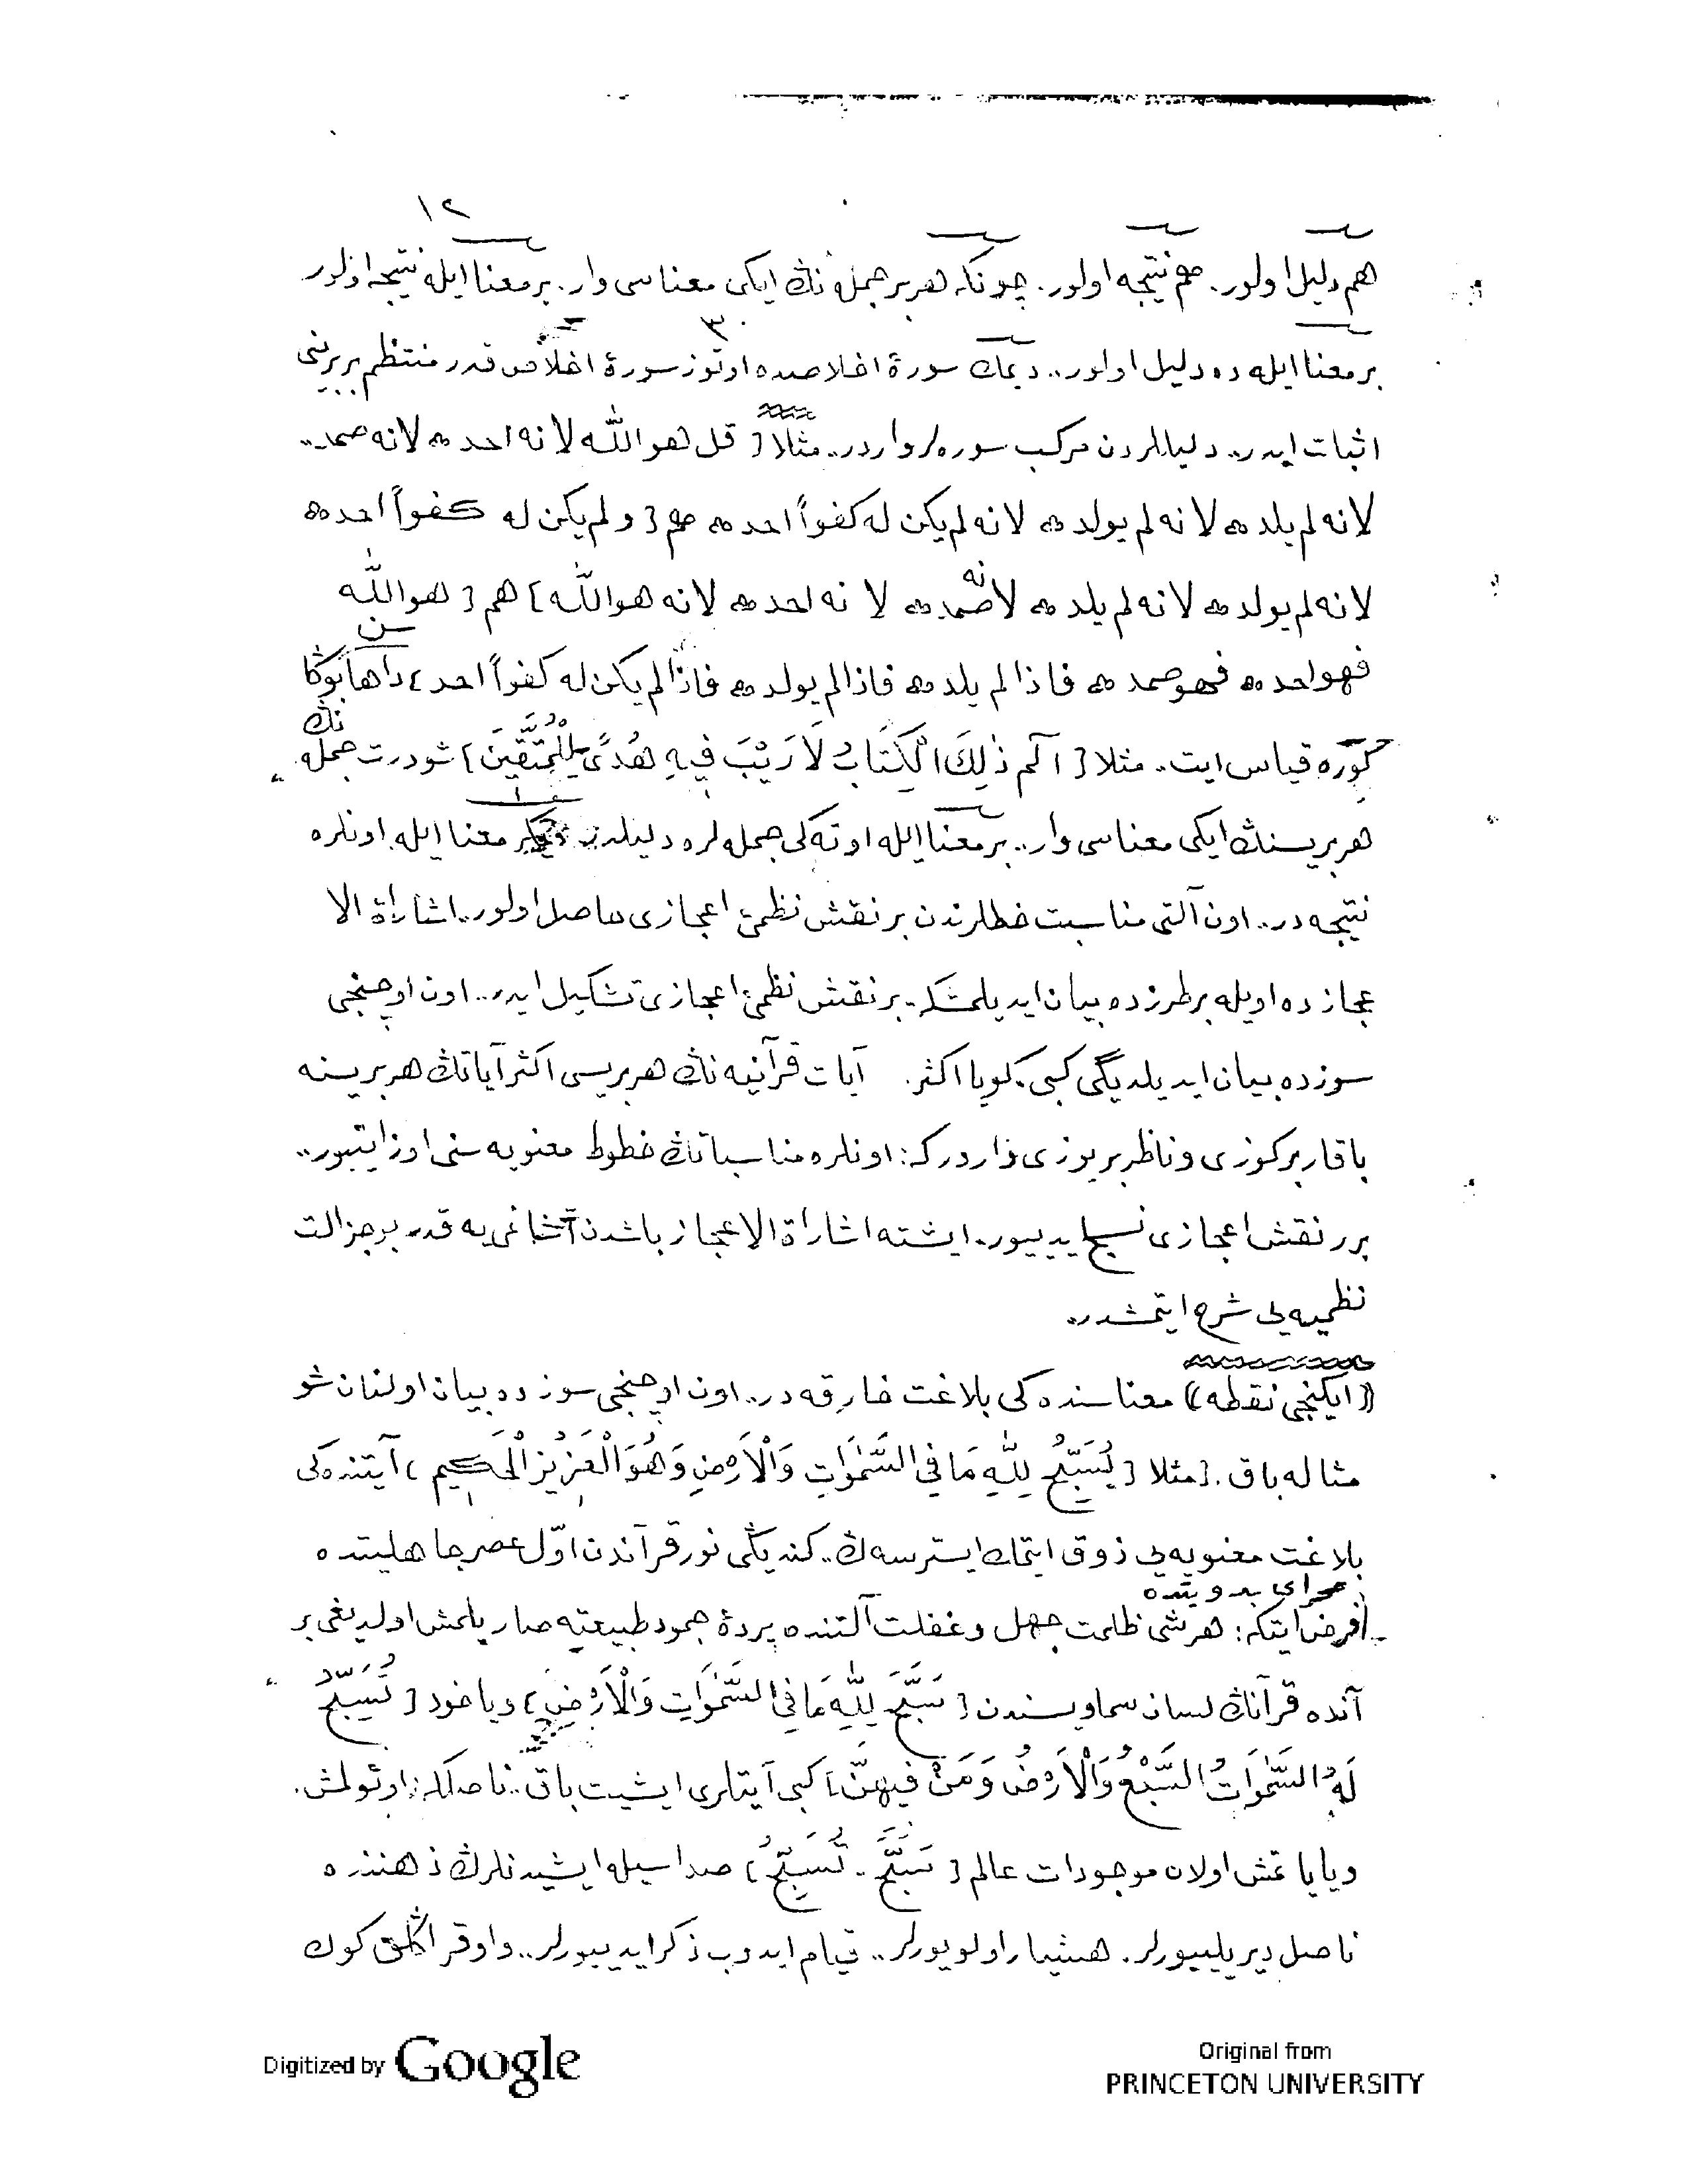 ١٢
هم دليل اولور. هم نتيجه اولور. چونكه هر بر جمله‌نڭ ايكى معناسى وار. بر معنا ايله نتيجه اولور
بر معنا ايله ده دليل اولور.. ديمك سورۀ اخلاصده اوتوز ٣٠ سورۀ اخلاص قدر منتظم بربرينى
اثبات ايدر.. دليللردن مركب سوره‌لر واردر.. مثلا [ قل هو الله لانه احد ۞ لانه صمد..
لانه لم يلد ۞ لانه لم يولد ۞ لانه لم يكن له كفواً احد ۞ هم [ ولم يكن له كفواً احد ۞
لانه لم يولد ۞ لانه لم يلد ۞ لانه صمد ۞ لانه احد ۞ لانه هو الله ] هم [ هو الله
فهو احد ۞ فهو صمد ۞ فاذا لم يلد ۞ فاذا لم يولد ۞ فاذا لم يكن له كفواً احد ] داها سن بوڭا
كوره قياس ايت.. مثلا [ آلم ذٰلِكَ الْكِتَابُ لَا رَيْبَ فِيهِ هُدًى لِلْمُتَّقِينَ ] شو درت جمله‌نڭ
هر بريسنڭ ايكى معناسى وار.. بر معنا ايله اوته‌كى جمله‌لره دليلدر. ديكر معنا ايله اونلره
نتيجه در.. اون آلتى مناسبت خطلرندن بر نقش نظمئ اعجازى حاصل اولور.. اشاراة الا
عجازده اويله بر طرزده بيان ايديلمشكه.. بر نقش نظمئ اعجازى تشكيل ايدر.. اون اوچنجى
سوزده بيان ايديلديگى كبى. كويا اكثر. آيات قرآنيه‌نڭ هر بريسى اكثر آياتڭ هر بريسنه
باقار بر كوزى و ناظر بر يوزى واردركه: اونلره مناسباتڭ خطوط معنويه‌سنى اوزاتييور..
برر نقش اعجازى نسج ايدييور.. ايشته اشاراة الاعجاز باشدن آشاغى‌يه قدر بو جزالت
نظميه‌يى شرح ايتمشدر..
﴿ايكنجى نقطه﴾ معناسنده‌كى بلاغت خارقه‌در.. اون اوچنجى سوزده بيان اولنان شو
مثاله باق. [ مثلا [ يُسَبِّحُ لِلّٰهِ مَا فِى السَّمٰوَاتِ وَالْاَرْضِ وَهُوَ الْعَزِيزُ الْحَكِيمُ ] آيتنده‌كى
بلاغت معنويه‌يى ذوق ايتمك ايسترسه‌ڭ.. كنديڭى نور قرآندن اوّل عصر جاهليتده
صحراى بدويتده
فرض ايتكه: هر شى ظلمت جهل و غفلت آلتنده پردۀ جمود طبيعته صاريلمش اولديغى بر
آنده قرآنڭ لسان سماويسندن [ سَبَّحَ لِلّٰهِ مَا فِى السَّمٰوَاتِ وَالْاَرْضِ ] وياخود [ تُسَبِّحُ
لَهُ السَّمٰوَاتُ السَّبْعُ وَالْاَرْضُ وَمَنْ فِيهِنَّ ] كبى آيتلرى ايشيت باق.. ناصلكه: اوئولمش.
ويا ياتمش اولان موجودات عالم [ سَبَّحَ - تُسَبِّحُ ] صداسيله ايشيدنلرڭ ذهننده
ناصل ديريلييورلر. هشيار اولويورلر.. قيام ايدوب ذكر ايدييورلر.. و او قراڭلق كوك
Digitized by Google
Original from
PRINCETON UNIVERSITY